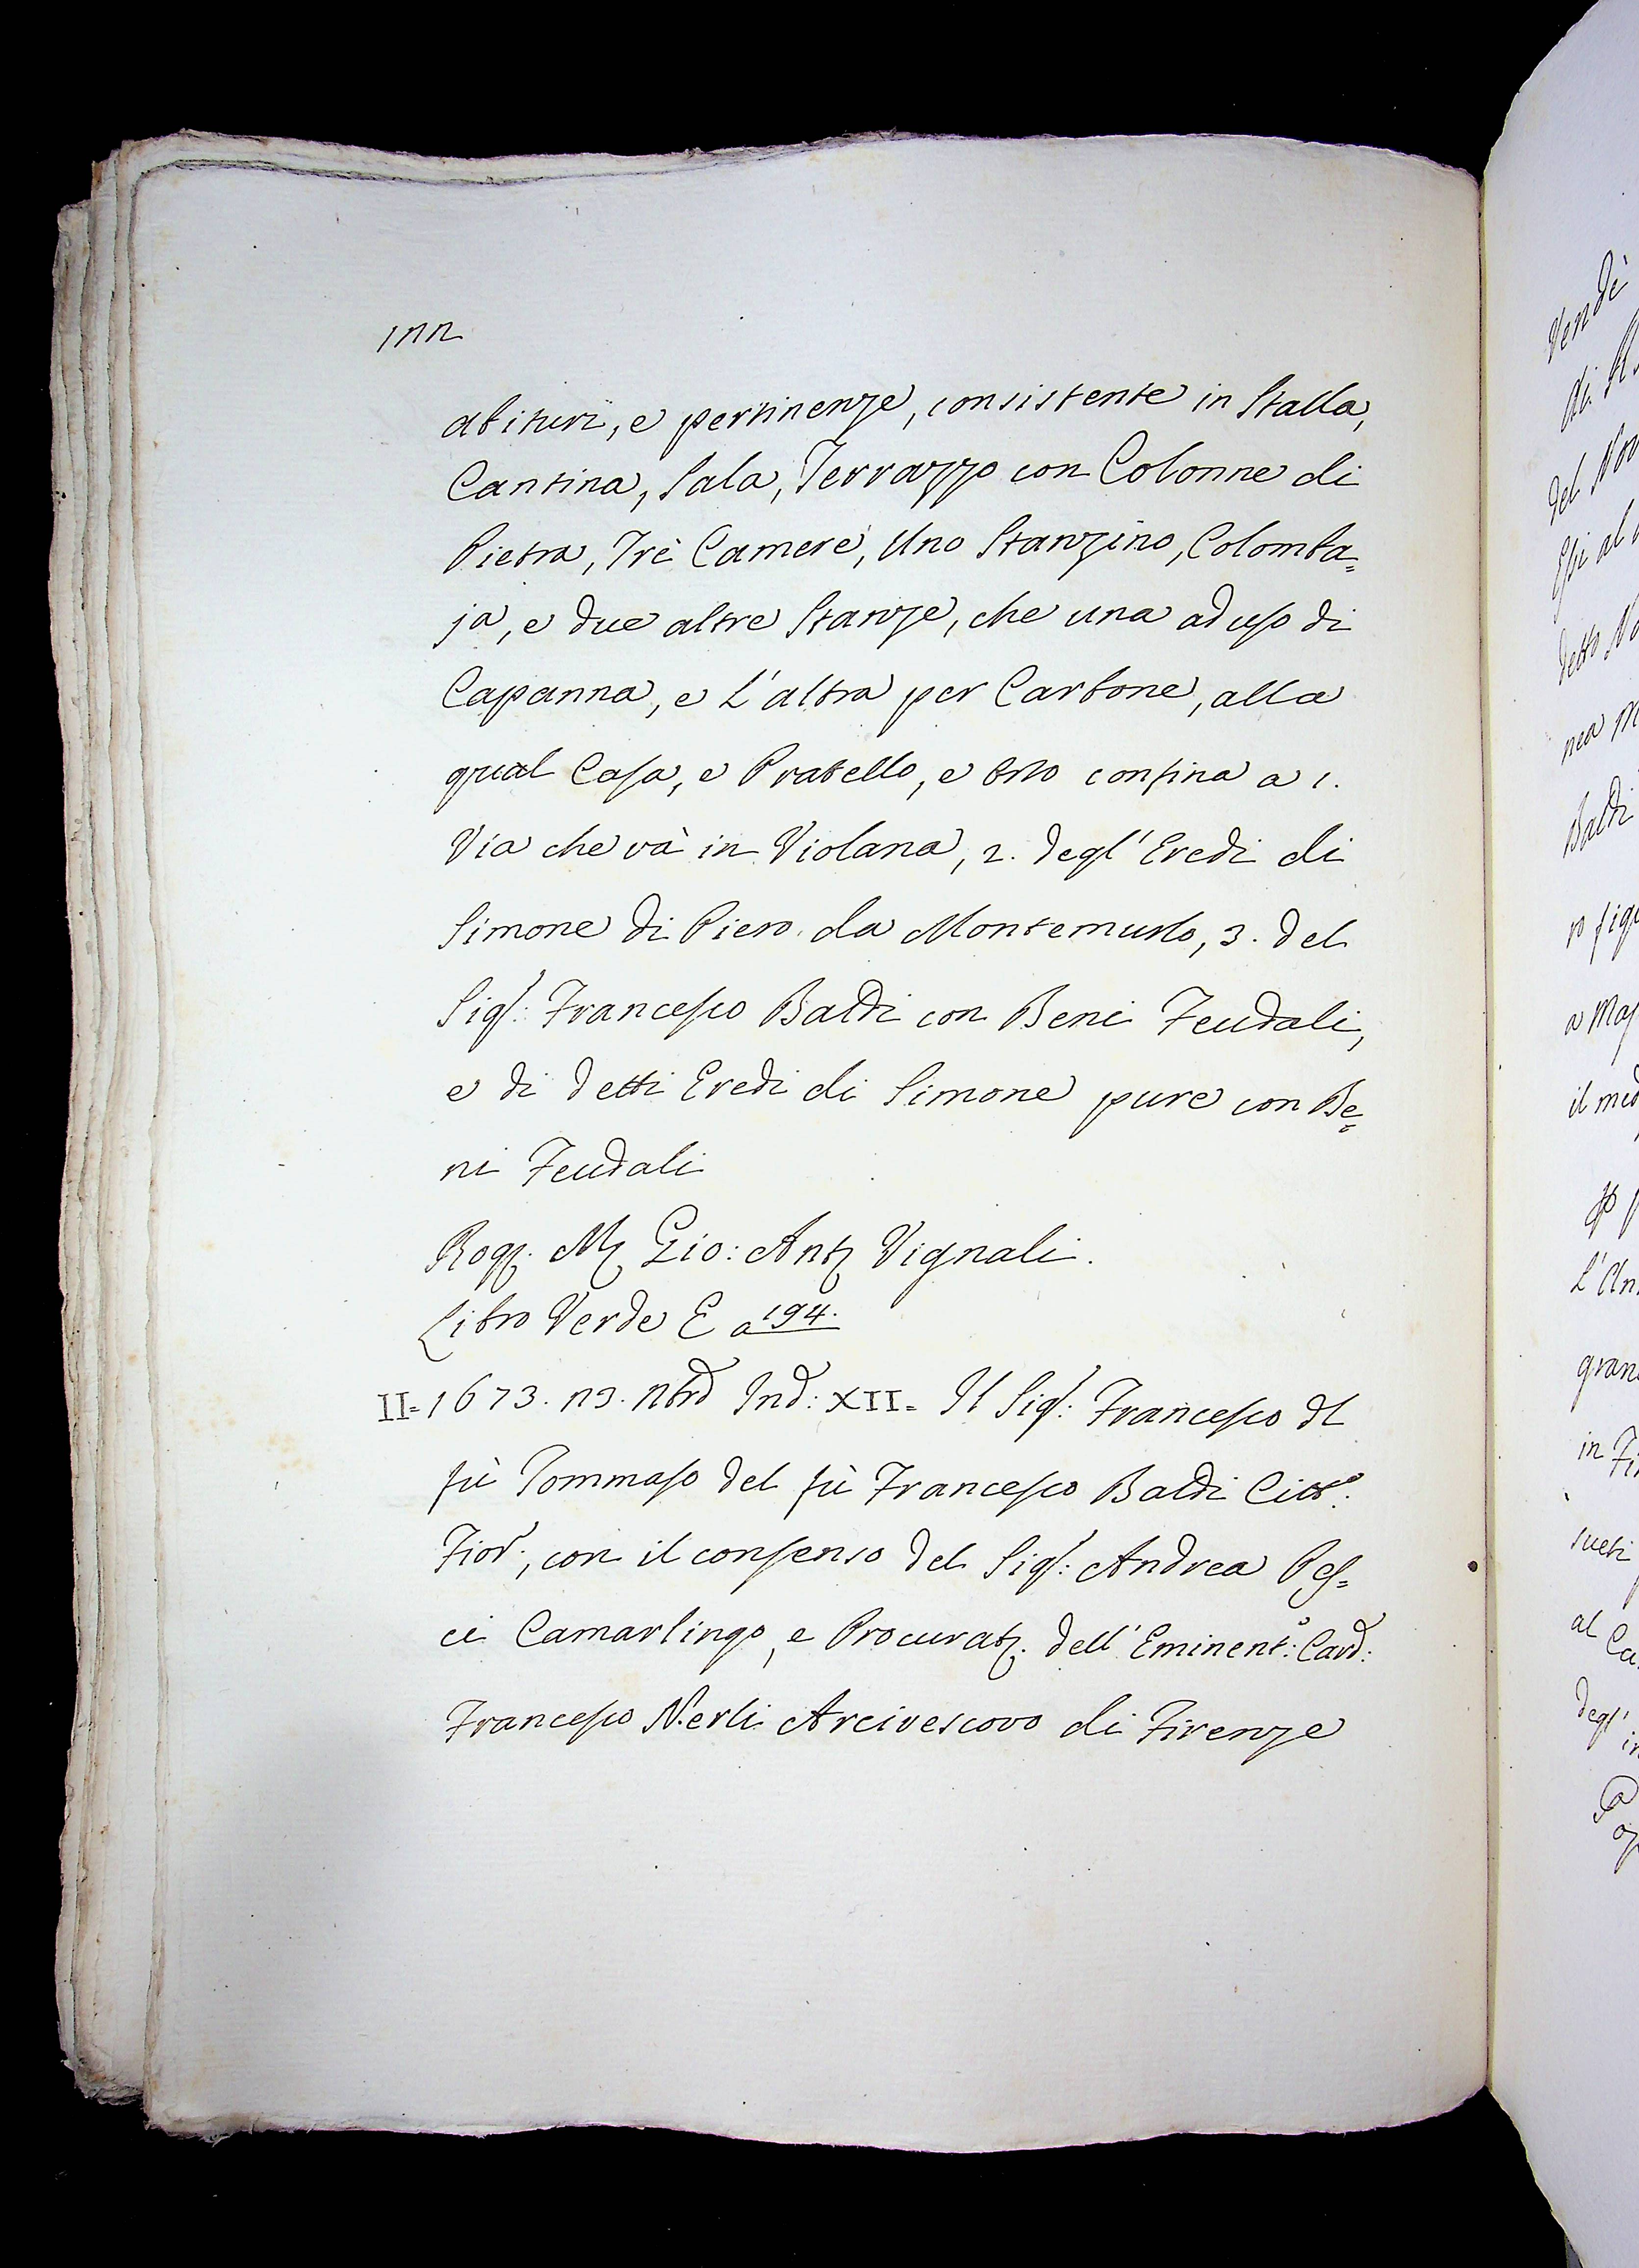 122
abituri, e pertinenze, consistente in Stalla,
Cantina, Sala, Terrazzo con Colonne di
Pietra, Trè Camere, Uno Stanzino, Colomba=
ja, e due altre Stanze, che una ad uso di
Capanna, e L'altra per Carbone, alla
qual Casa, e Pratello, e Orto confina a 1.
Via che và in Violana, 2. degl'Eredi di
Simone di Piero da Montemurlo, 3. del
Sig.r: Francesco Baldi con Beni Feudali,
e di detti Eredi di Simone pure con Be=
ni Feudali
Rog. M. Gio: Ant. Vignali.
Libro Verde E a 194.
II=1673. 23. Nbre Ind: XII= Il Sig.r: Francesco dl
fù Tommaso del fù Francesco Baldi Citt.o:
Fior.;, con il consenso del Sig.r: Andrea Pes=
ci Camarlingo, e Procurat. dell'Eminent.o: Card:
Francesco Nerli Arcivescovo di Firenze
Vendè
del
detto
Baldi
L'
in
al
degl'